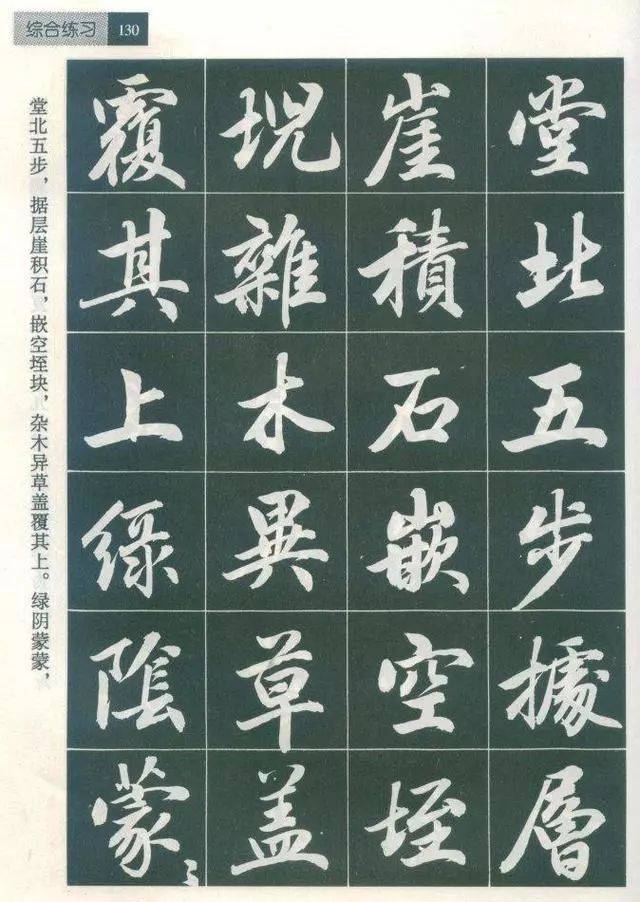 综合练习 130
堂北五步據層
崖積石嵌空垤
堄雜木異草盖
覆其上綠陰蒙〻
堂北五步，据层崖积石，嵌空垤块，杂木异草盖覆其上。绿阴蒙蒙，